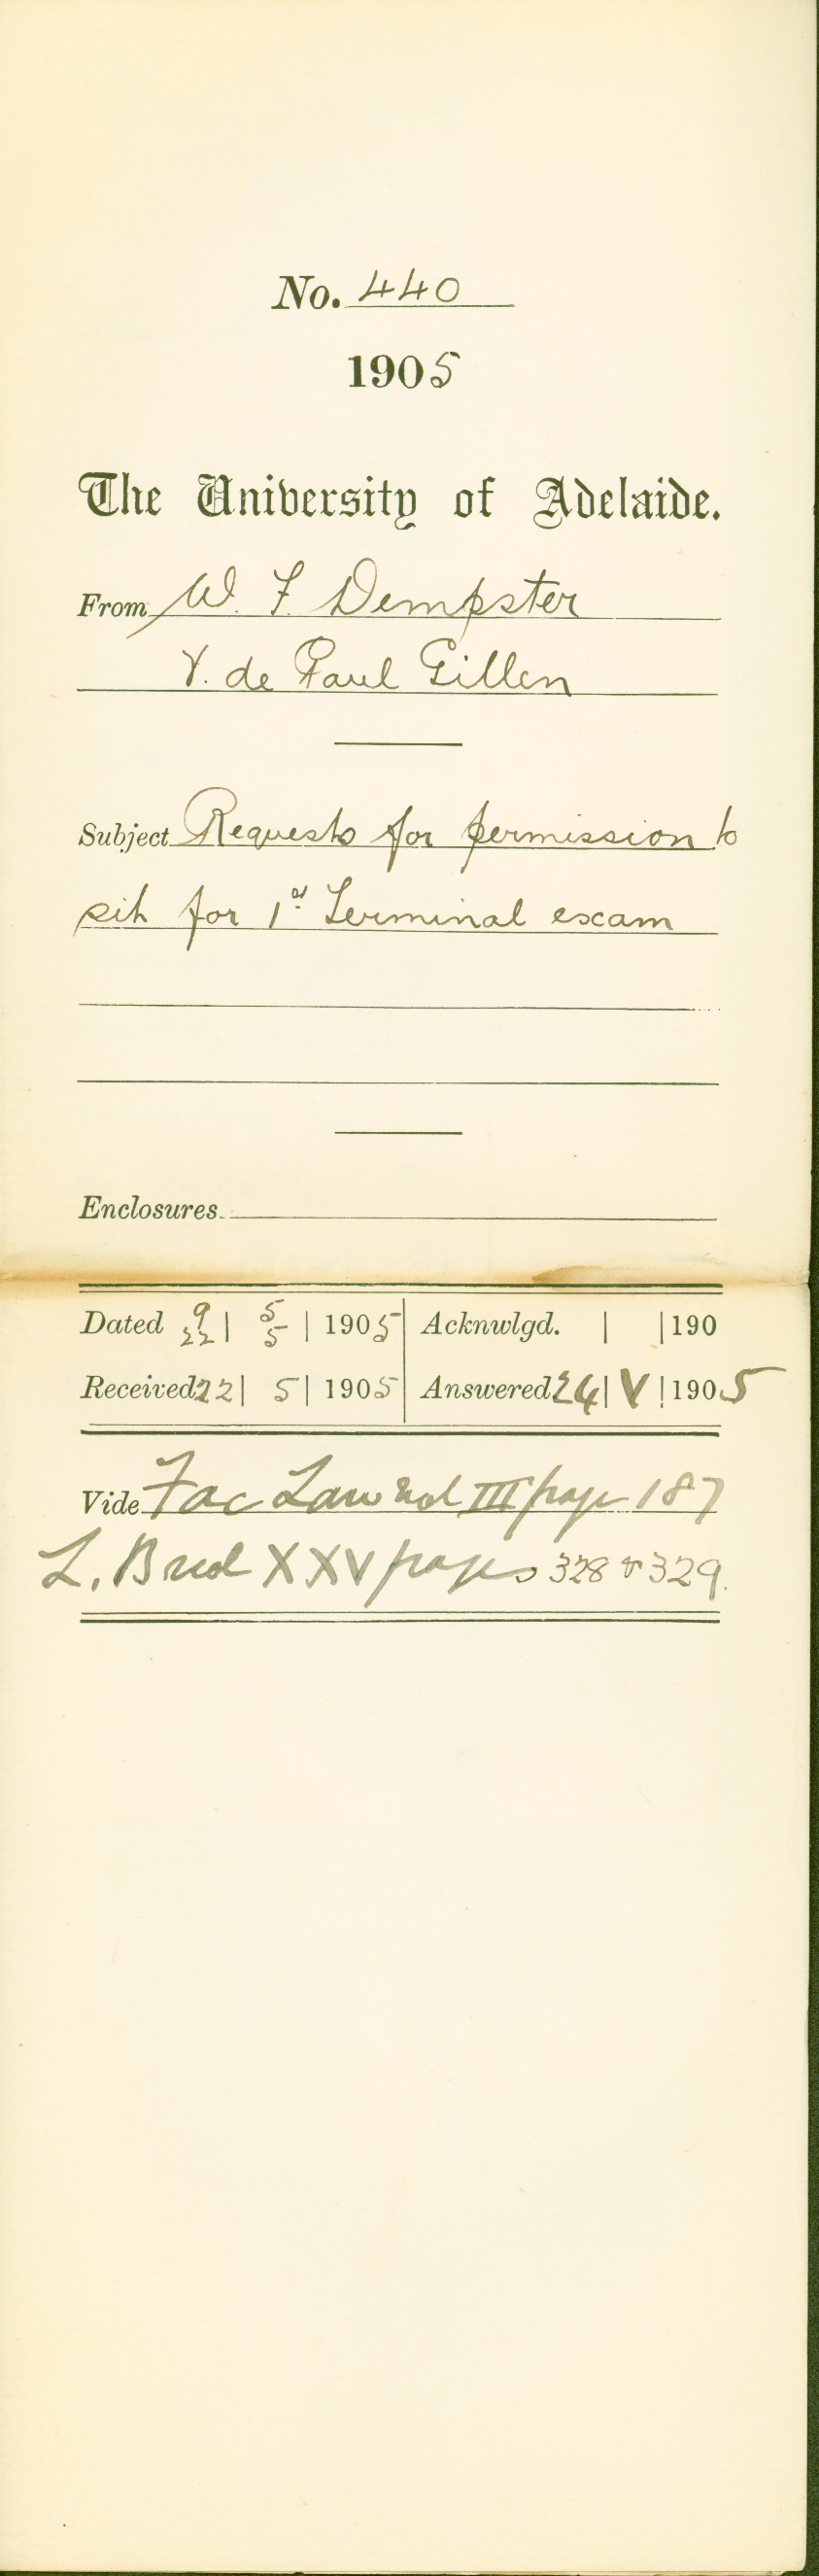 No. 440
1905
The University of Adelaide.
From W. F Dempster
V. de Paul Gillen
Subject Requests for permission to
sit for 1st Terminal exam
Enclosures
Dated 9 | 5 | 1905 Acknwlgd. | | 190
22 5
Received 22 | 5 | 1905 Answered 24 | V | 1905
Vide Fac Law vol III page 187
L. B vol XXV pages 328 & 329.